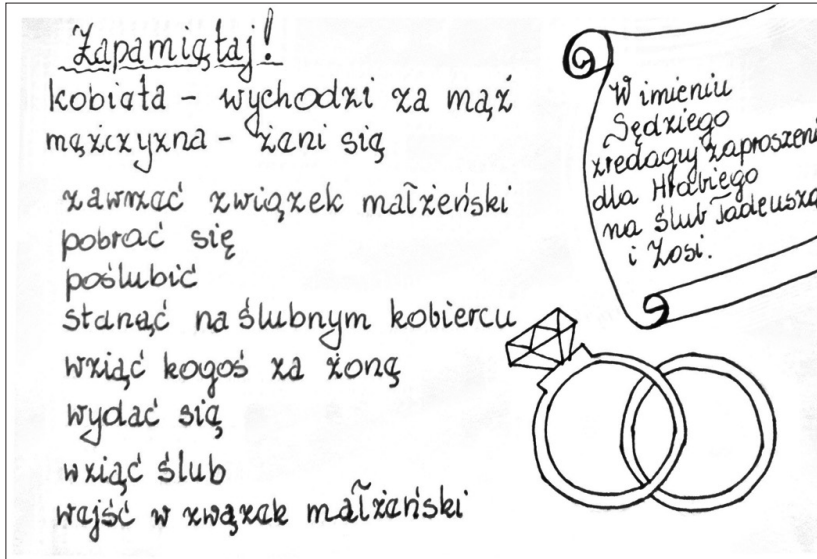 Zapamiętaj!
kobieta - wychodzi za mąż
mężczyzna - żeni się
zawrzeć związek małżeński
pobrać się
poślubić
stanąć na ślubnym kobiercu
wziąć kogoś za żonę
wydać się
wziąć ślub
wejść w zwązek małżeński
W imieniu
Sędziego
zredaguj zaproszeni
dla Hrabiego
na ślub Tadeusza
i Zosi.